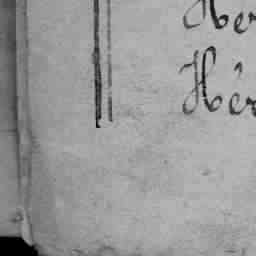 Her
Hér